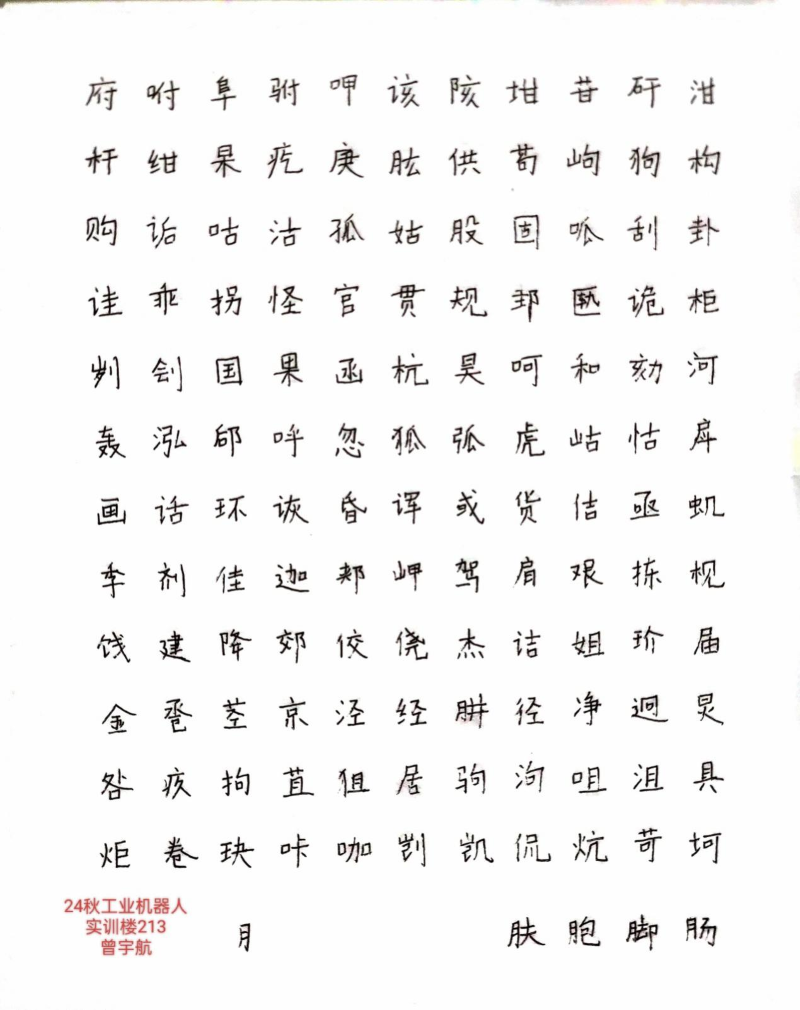 府 咐 阜 驸 呷 该 陔 坩 苷 矸 泔
杆 绀 杲 疙 庚 肱 供 苟 岣 狗 构
购 诟 咕 沽 孤 姑 股 固 呱 刮 卦
诖 乖 拐 怪 官 贯 规 邽 匦 诡 柜
刿 刽 国 果 函 杭 昊 呵 和 劾 河
轰 泓 郈 呼 忽 狐 弧 虎 岵 怙 戽
画 话 环 诙 昏 诨 或 货 佶 亟 虮
季 剂 佳 迦 郏 岬 驾 肩 艰 拣 枧
饯 建 降 郊 佼 侥 杰 诘 姐 玠 届
金 卺 茎 京 泾 经 肼 径 净 迥 炅
咎 疚 拘 苴 狙 居 驹 泃 咀 沮 具
炬 卷 玦 咔 咖 剀 凯 侃 炕 苛 坷
24秋工业机器人
实训楼213
曾宇航
月 肤 胞 脚 肠